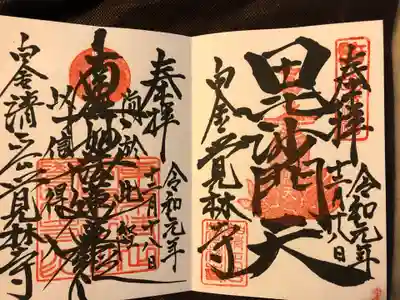 奉拝
十二月十八日
令和元年
毘沙門天
白金 覚林寺
奉拝
十二月十八日
令和元年
南無妙法蓮華経
以信得入
白金清正公 覚林寺